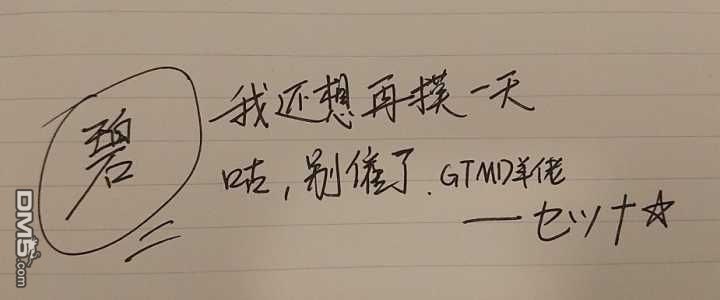 碧
我还想再摸一天
咕，别催了.GTMD羊佬
——セツナ☆
DM5.com